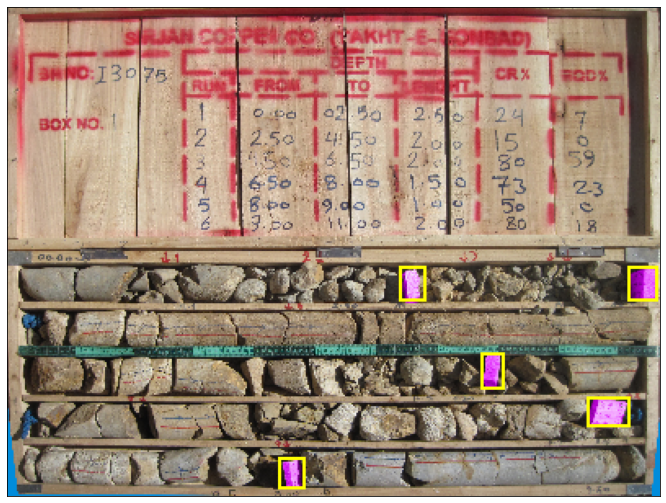 SIRJAN COPPER CO. (TAKHT-E-GONBAD)
DEPTH
BH NO: I3075
RUN FROM TO LENGHT CR% RQD%
BOX NO. 1
1 0.00 02.50 2.50 24 7
2 2.50 4.50 2.00 15 0
3 4.50 6.50 2.00 80 59
4 6.50 8.00 1.50 73 23
5 8.00 9.00 1.00 50 0
6 9.00 11.00 2.00 80 18
00.00
1
2
3